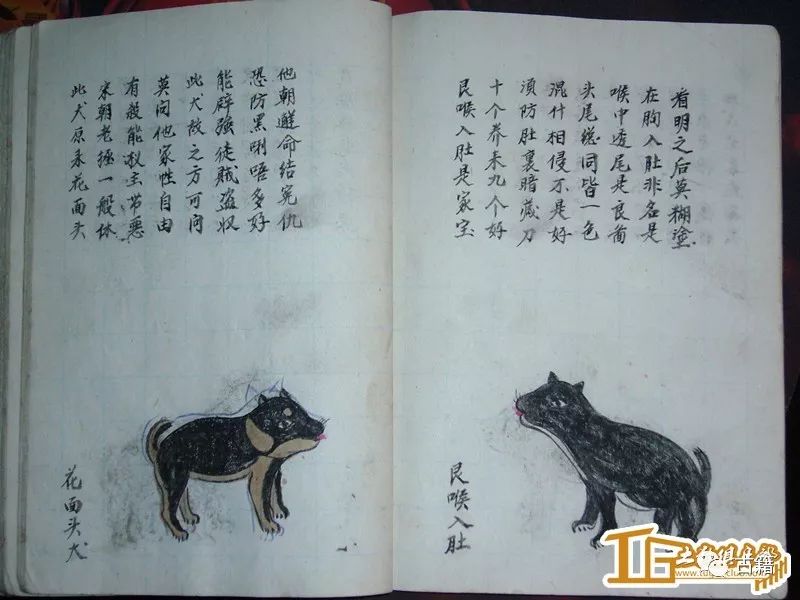 此犬原来花面头
宋朝老極一般体
有殺能救主常悪
莫问他家性自由
此犬放之方可问
能辟強徒贼盗収
恐防黑唎唔多好
他朝難命结冤仇
花面头犬
艮喉入肚是家宝
十个养来九个好
須防肚裏暗藏刀
混什相侵不是好
头尾总同皆一色
喉中透尾是良苗
在胸入肚非名是
看明之后莫糊塗
艮喉入肚
古籍